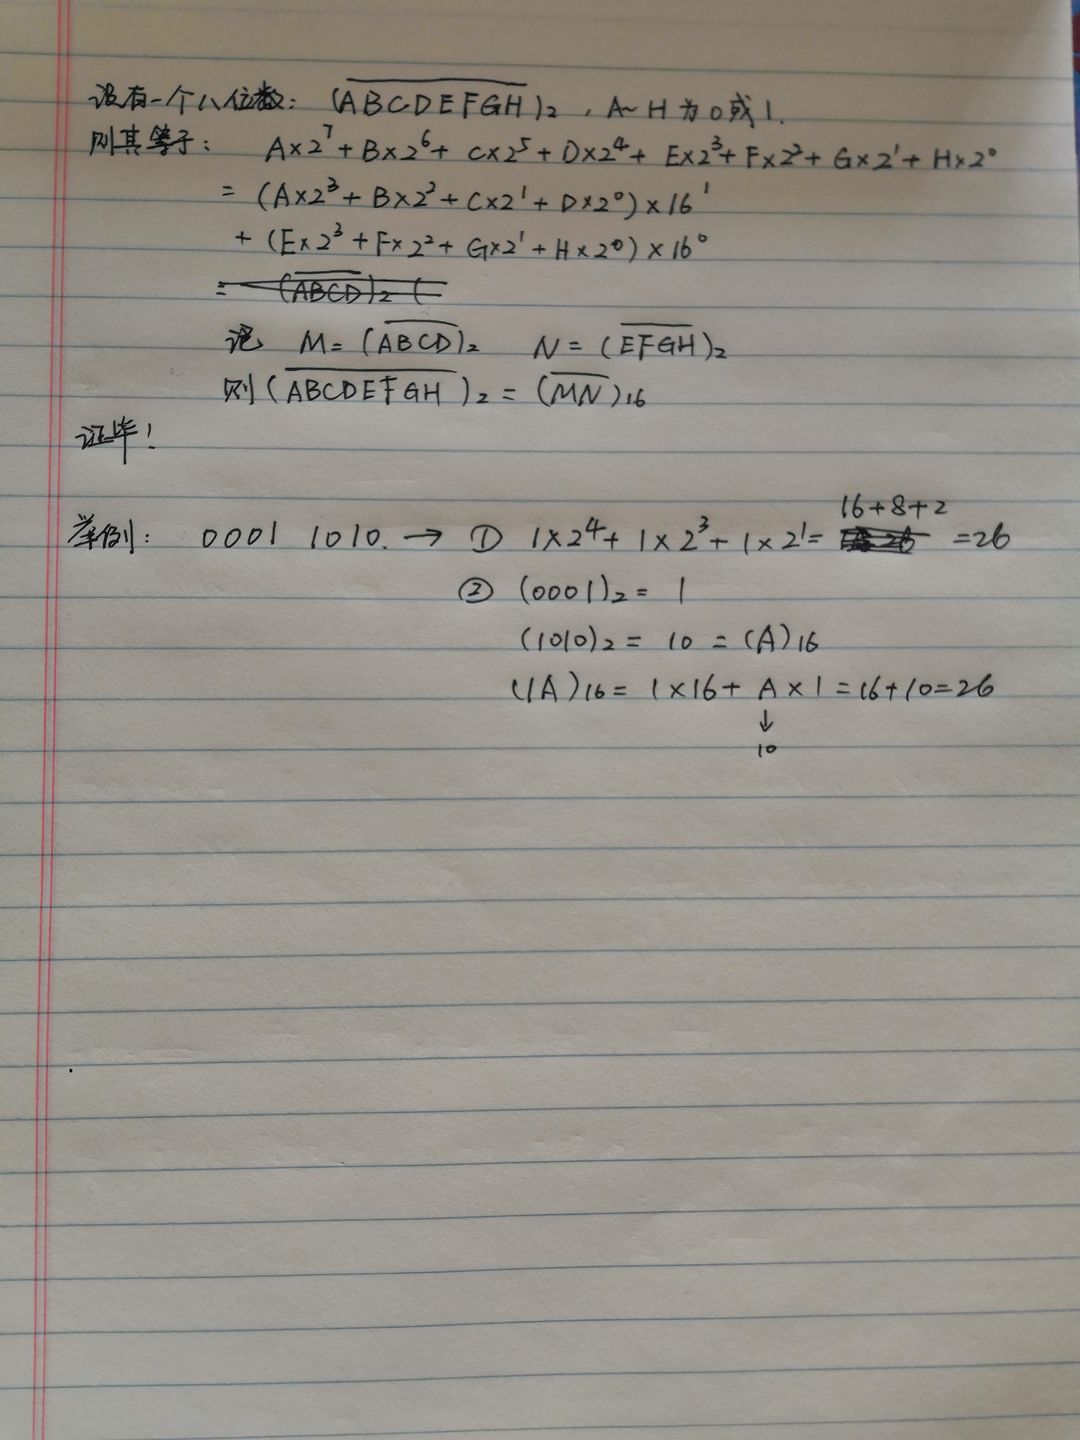 设有一个八位数: (ABCDEFGH)₂ , A~H 为 0或1.
则其等于: A×2⁷+B×2⁶+C×2⁵+D×2⁴+E×2³+F×2²+G×2¹+H×2⁰
= (A×2³+B×2²+C×2¹+D×2⁰)×16¹
+ (E×2³+F×2²+G×2¹+H×2⁰)×16⁰
= (ABCD)₂ (
记 M=(ABCD)₂ N=(EFGH)₂
则(ABCDEFGH)₂=(MN)₁₆
证毕!
16+8+2
举例: 0001 1010. → ① 1×2⁴+1×2³+1×2¹= =26
② (0001)₂= 1
(1010)₂= 10 =(A)₁₆
(1A)₁₆= 1×16+A×1=16+10=26
↓
10